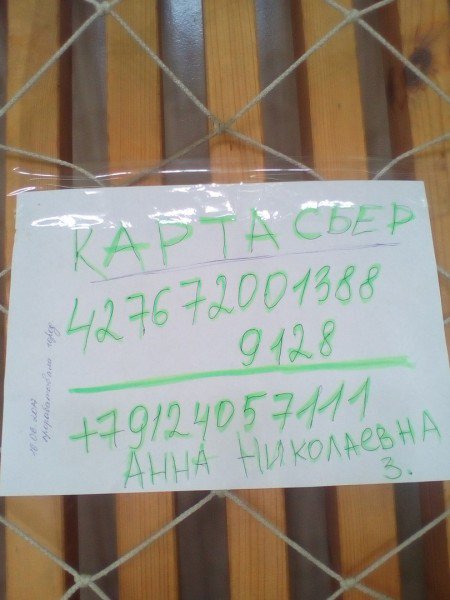 КАРТА СБЕР
427672001388
9128
+79124057111
АННА НИКОЛАЕВНА
З.